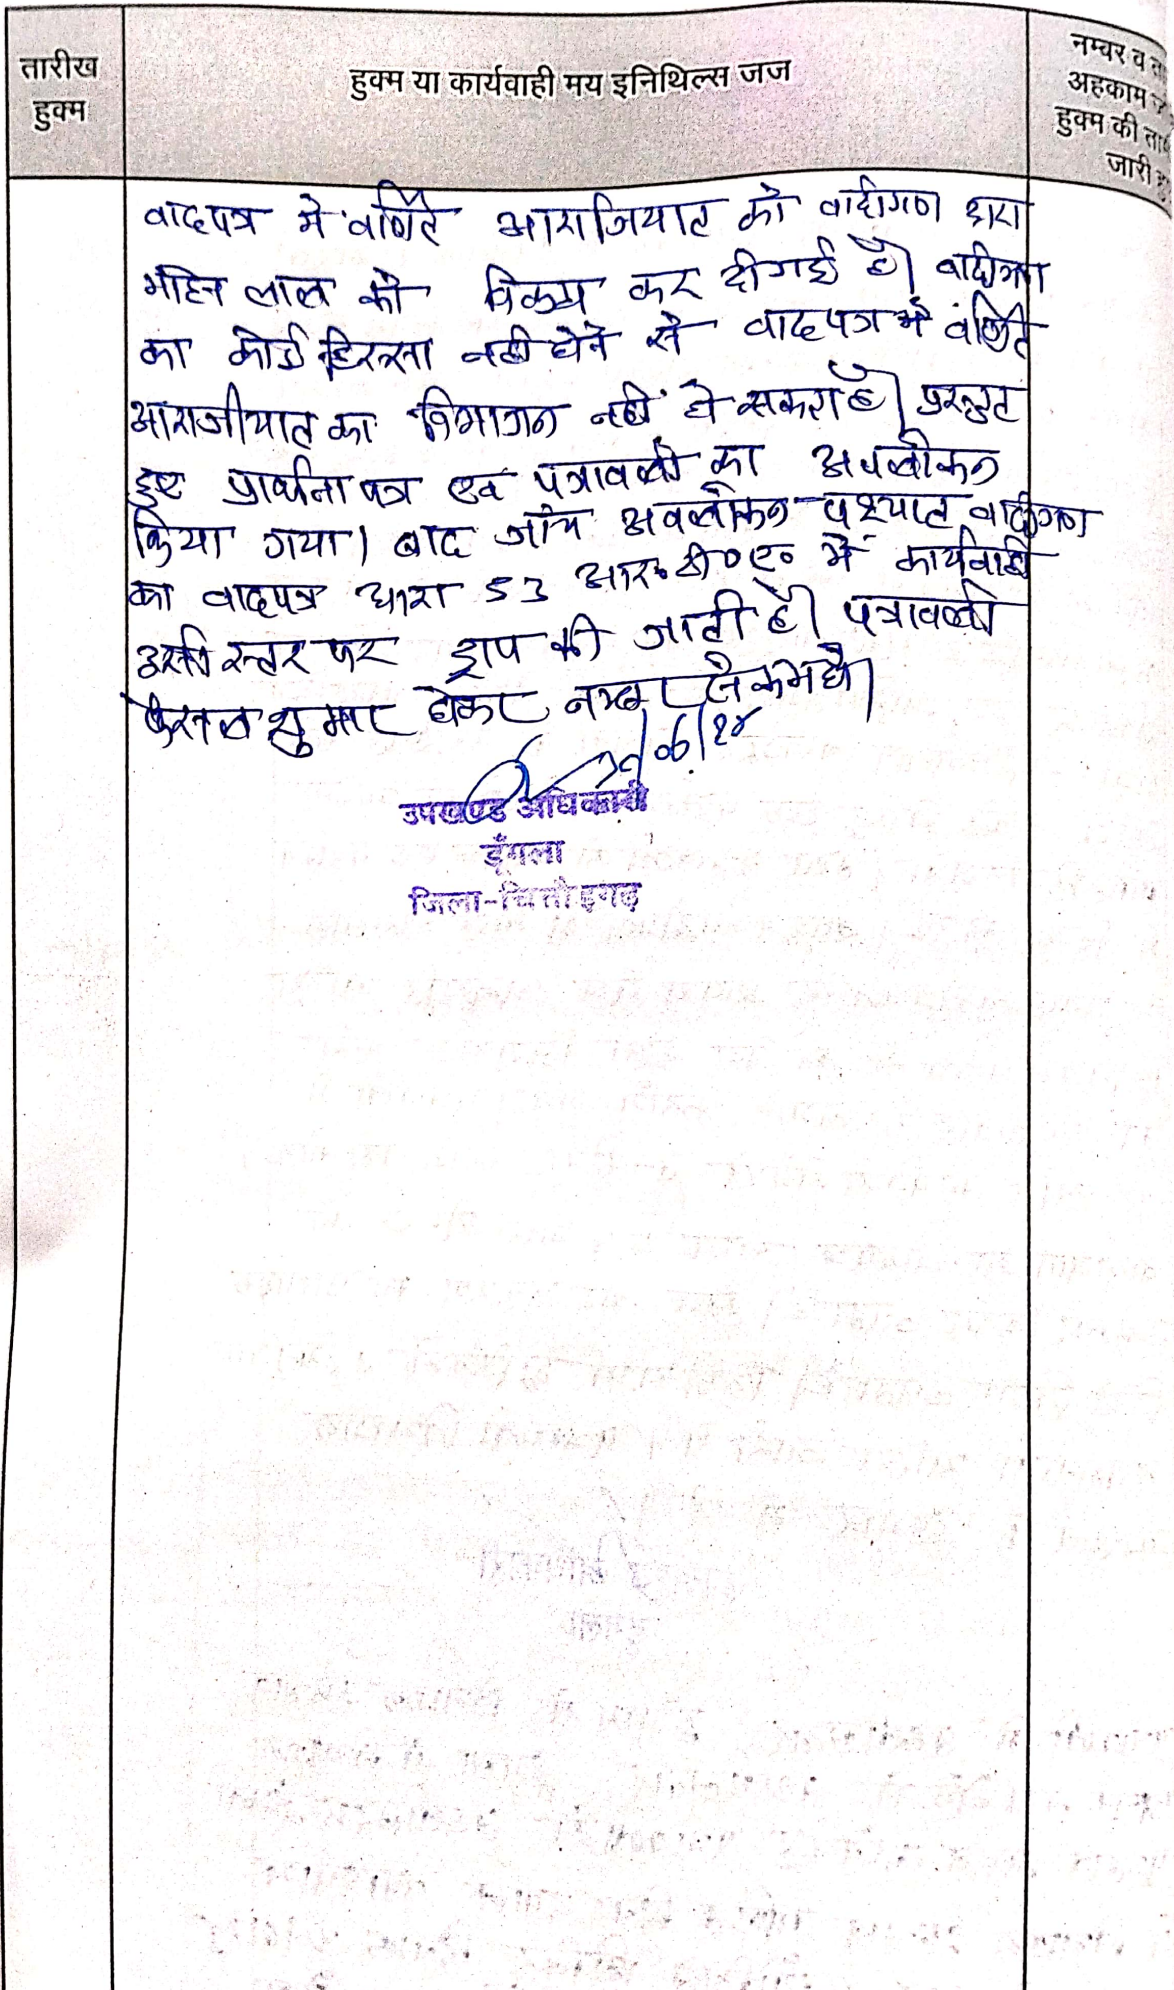 तारीख
हुक्म
हुक्म या कार्यवाही मय इनिथिल्स जज
नम्बर व
अहकाम
हुक्म की
जारी
वादपत्र में वर्णित आराजियात को वादीगण द्वारा
लाल को विक्रय कर दी गई है। वादीगण
का कोई हिस्सा नही होने से वादपत्र में वर्णित
आराजीयात का विभाजन नहीं हो सकता है। प्रस्तुत
हुए प्रार्थना पत्र एवं पत्रावली का अवलोकन
किया गया। बाद जॉच अवलोकन पश्चात वादीगण
का वादपत्र धारा 53 आर०टी०ए० में कार्यवाही
इसी स्तर पर ड्राप की जाती है। पत्रावली
फैसल शुमार होकर नम्बर से कम हो।
06/24
उपखण्ड अधिकारी
डूँगला
जिला-चित्तोड़गढ़